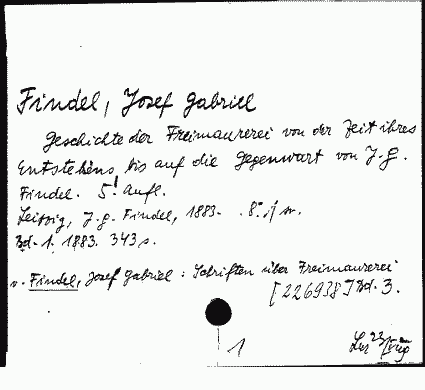 Findel, Josef Gabriel
Geschichte der Freimaurerei von der Zeit ihres
Entstehens bis auf die Gegenwart von J. G.
Findel. 5! Aufl.
Leipzig, J. G. Findel, 1883. 8°.
Bd. 1. 1883. 343 s.
v. Findel, Josef Gabriel : Schriften über Freimaurerei
[226938] Bd. 3.
1